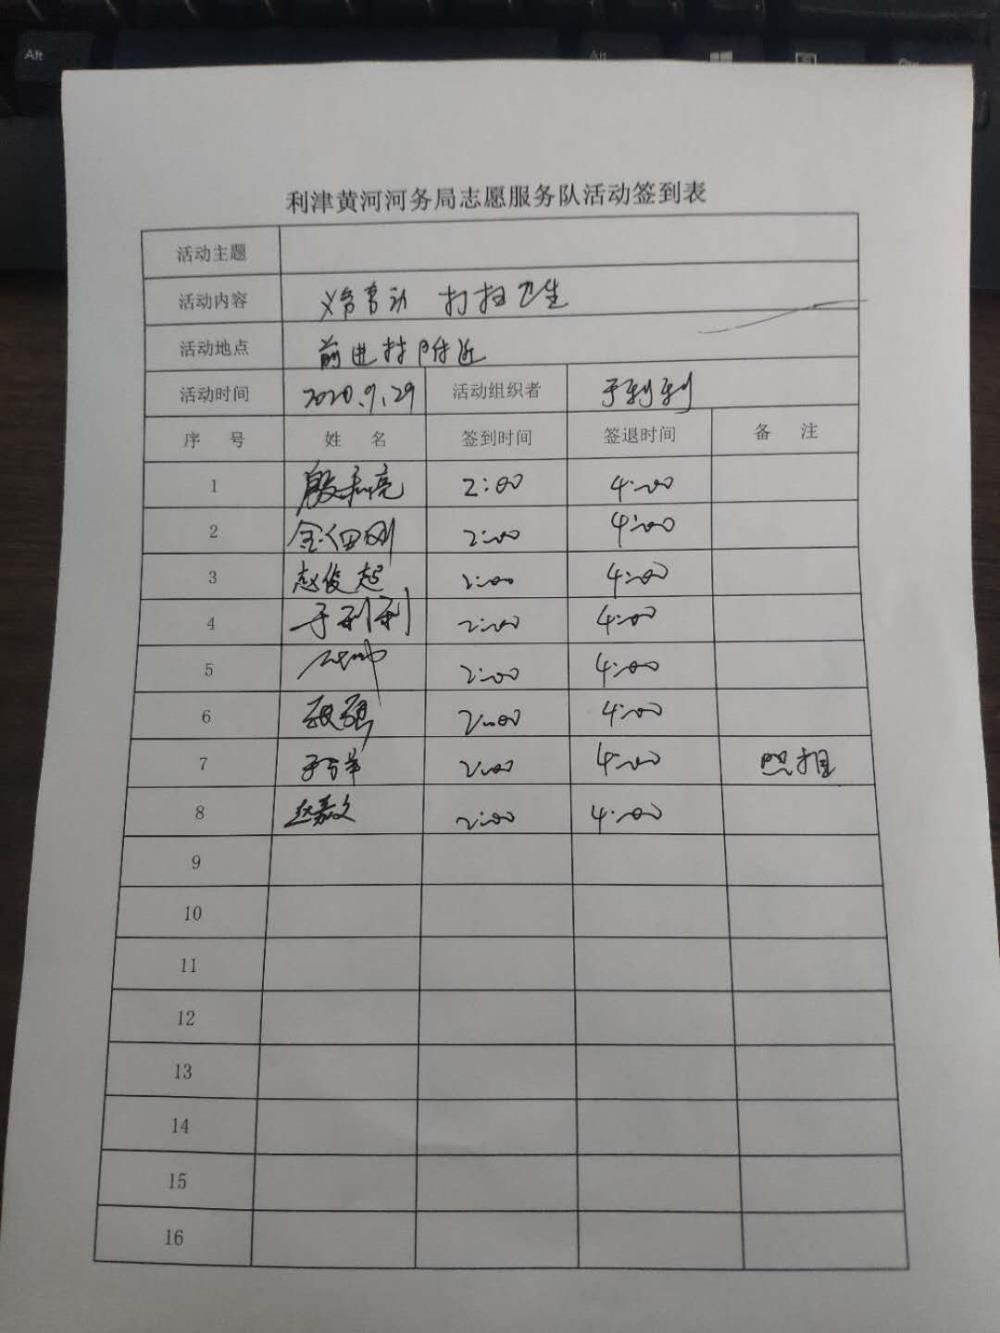 Alt
利津黄河河务局志愿服务队活动签到表
活动主题
活动内容 义务劳动 打扫卫生
活动地点 前进村附近
活动时间 2020.9.29 活动组织者 于利利
序号 姓名 签到时间 签退时间 备注
1 2:00 4:00
2 2:00 4:00
3 赵俊起 2:00 4:00
4 于利利 2:00 4:00
5 2:00 4:00
6 2:00 4:00
7 2:00 4:00 照相
8 赵嘉文 2:00 4:00
9
10
11
12
13
14
15
16